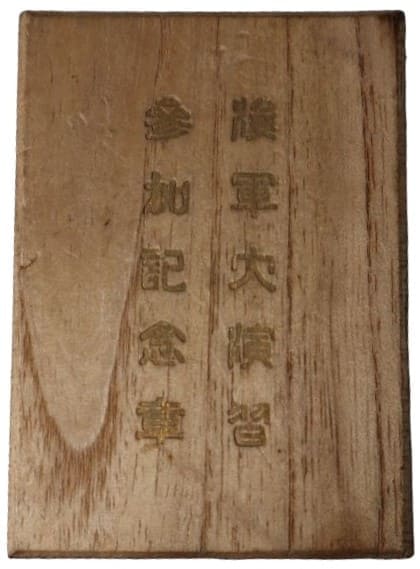 陸軍大演習
參加記念章